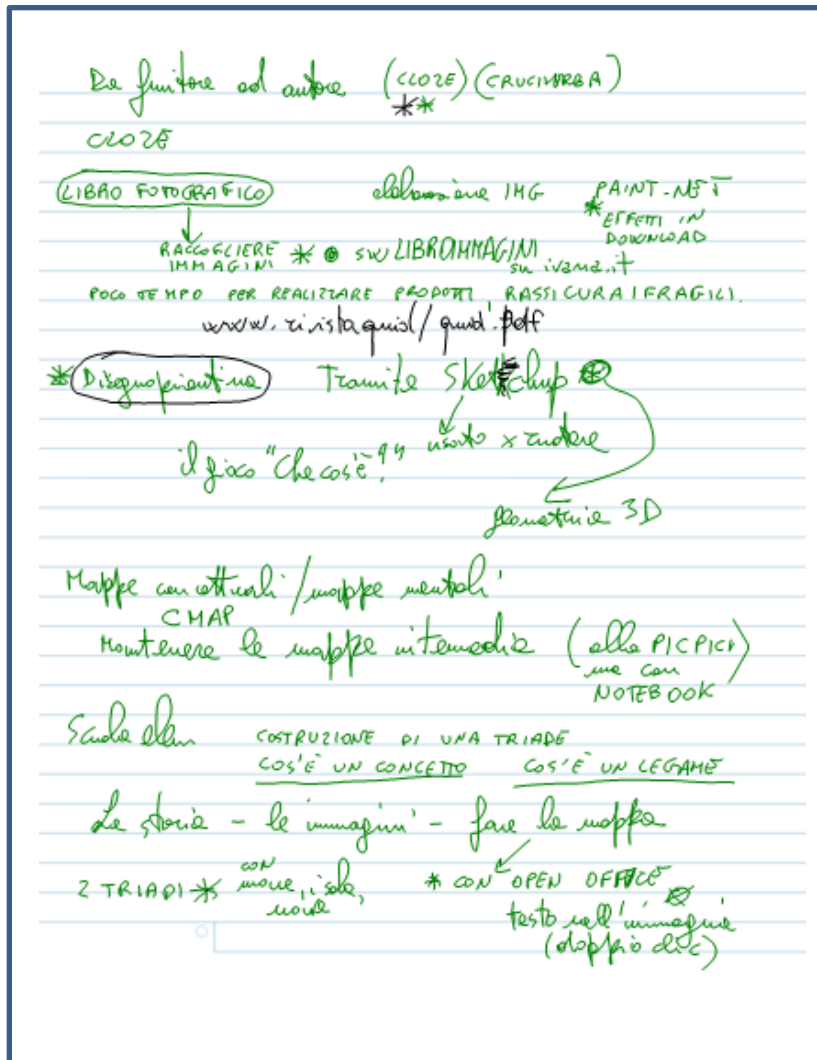 Da fruitore ad autore (CLOZE) (CRUCIVERBA)
**
CLOZE
LIBRO FOTOGRAFICO elaborazione IMG PAINT.NET
* EFFETTI IN
DOWNLOAD
RACCOGLIERE
IMMAGINI * SW LIBROIMMAGINI
su ivana.it
POCO TEMPO PER REALIZZARE PRODOTTI RASSICURA I FRAGILI.
www.rivistaquid/quid1.pdf
* Disegno Tramite Sketchup
usarlo x ruotare
il gioco "Che cos'è?"
geometria 3D
Mappe concettuali/mappe mentali
CMAP
Mantenere le mappe intermedie (alla PICPICK
ma con
NOTEBOOK)
Scuola elem COSTRUZIONE DI UNA TRIADE
COS'È UN CONCETTO COS'È UN LEGAME
La storia - le immagini - fare la mappa
2 TRIADI * CON * CON OPEN OFFICE
isola,
testo nell'immagine
(doppio clic)